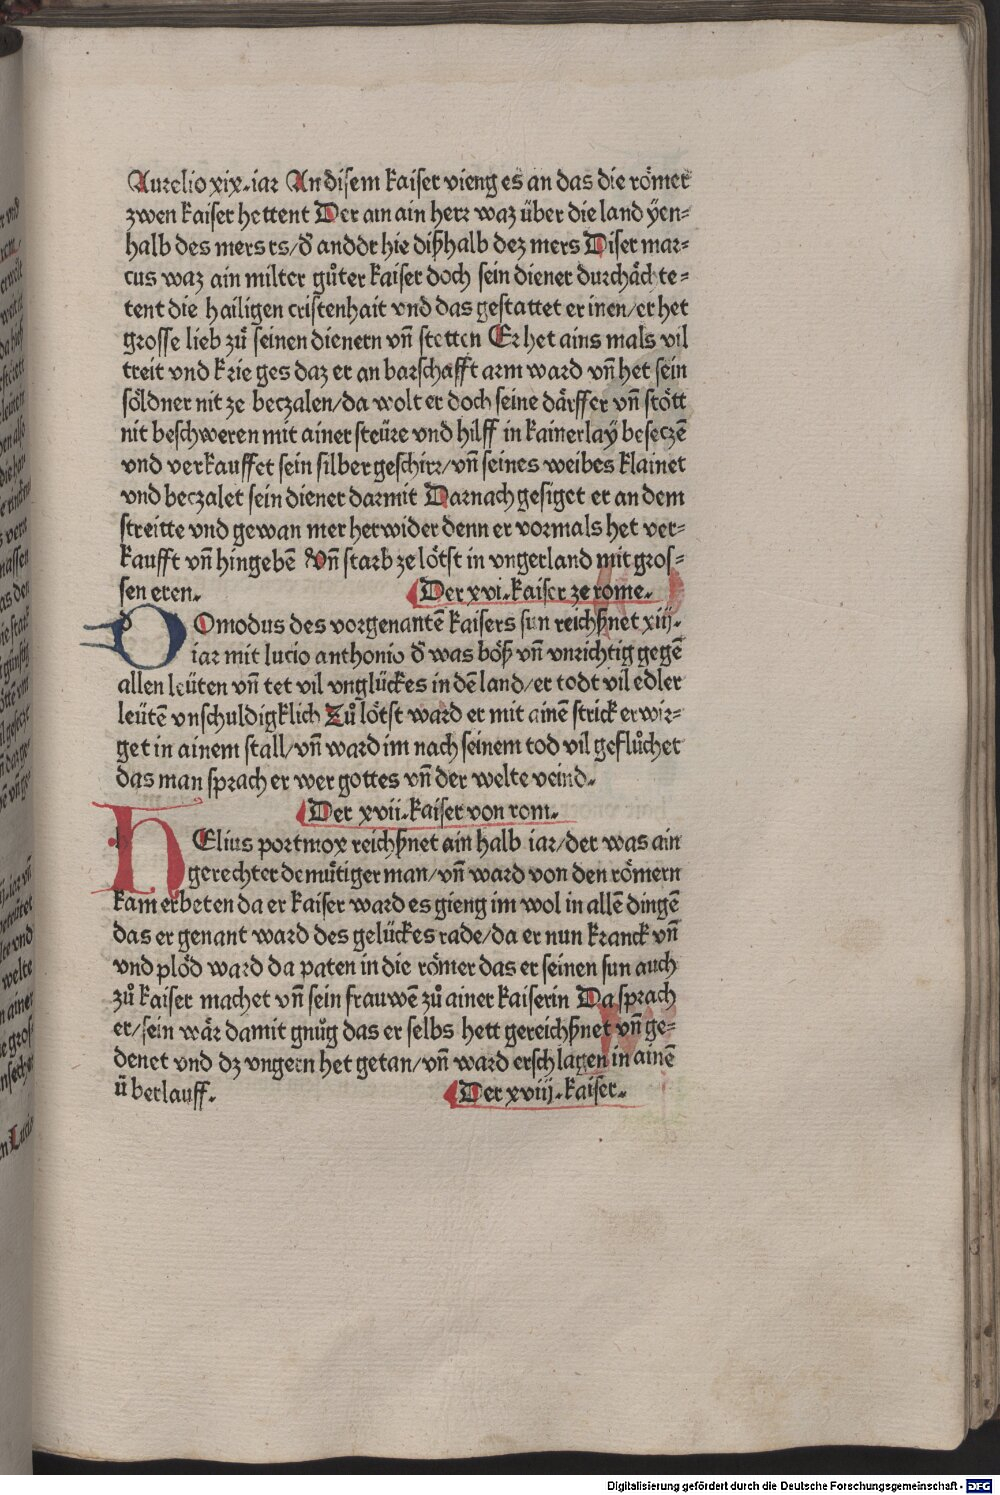 Aurelio xix. iar An disem kaiser vieng es an das die römer
zwen kaiser hettent Der ain ain herr waz über die land yen-
halb des mers es/ đ ander hie dißhalb dez mers Diser mar-
cus waz ain milter gůter kaiser doch sein diener durchächte-
tent die hailigen cristenhait vnd das gestattet er inen/ er het
grosse lieb zů seinen dienern vn̄ stetten Er het ains mals vil
streit vnd krieges daz er an barschafft arm ward vn̄ het sein
söldner nit ze beczalen/ da wolt er doch seine därffer vn̄ stött
nit beschweren mit ainer steüre vnd hilff in kainerlaÿ beseczē
vnd verkauffet sein silbergeschirr/ vn̄ seines weibes klainet
vnd beczalet sein diener darmit Darnach gesiget er an dem
streitte vnd gewan mer herwider denn er vormals het ver-
kaufft vn̄ hingebē Vn̄ starb ze lötst in vngerland mit gros-
sen eren.
Der xvi. kaiser ze rome.
d Omodus des vorgenantē kaisers sun reichßnet xiij.
iar mit lucio anthonio đ was böß vn̄ vnrichtig gegē
allen leüten vn̄ tet vil vnglückes in dē land/ er todt vil edler
leütē vnschuldigklich Zů lötst ward er mit ainē strick erwir-
get in ainem stall/ vn̄ ward im nach seinem tod vil geflůchet
das man sprach er wer gottes vn̄ der welte veind.
Der xvii. kaiser von rom.
h Elius portmox reichßnet ain halb iar/ der was ain
gerechter demütiger man/ vn̄ ward von den römern
kam erbeten da er kaiser ward es gieng im wol in allē dingē
das er genant ward des gelückes rade/ da er nun kranck vn̄
vnd plöd ward da paten in die römer das er seinen sun auch
zů kaiser machet vn̄ sein frauwē zů ainer kaiserin Da sprach
er/ sein wär damit gnůg das er selbs hett gereichßnet vn̄ ge-
denet vnd dz vngern het getan/ vn̄ ward erschlagen in ainē
überlauff.
Der xviij. kaiser.
Digitalisierung gefördert durch die Deutsche Forschungsgemeinschaft - DFG